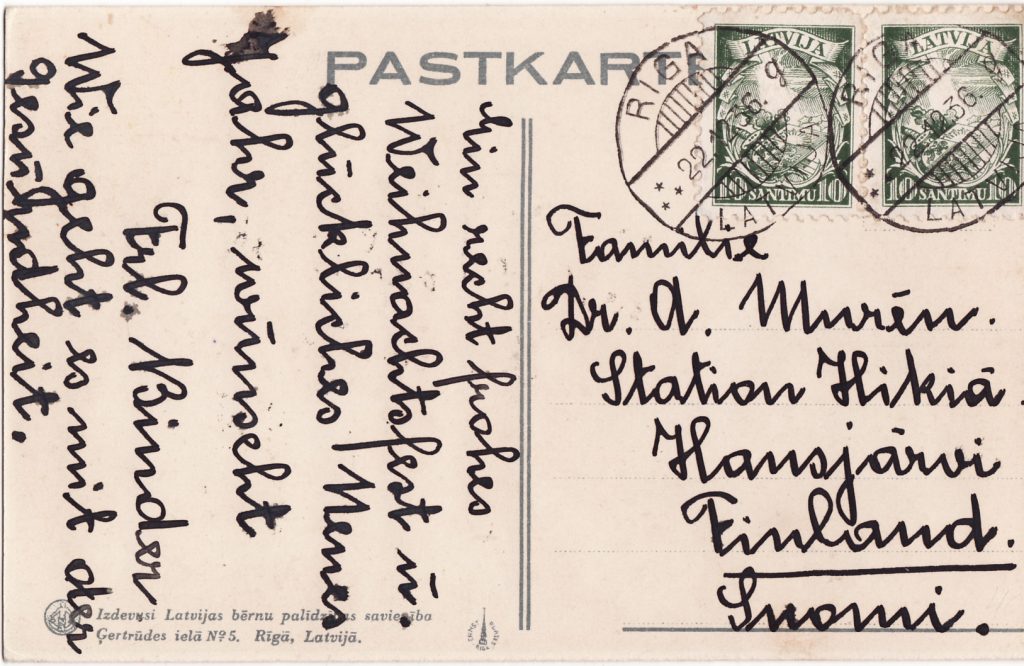 PASTKARTE
LATVIJA
10 SANTIMU 10
LATVIJA
10 SANTIMU 10
RIGA
22.12.36.
LATVIJA
RIGA
22.12.36.
LATV
Ein recht frohes
Weihnachtsfest u.
glückliches Neues
Jahr, wünscht
Frl. Binder.
Wie geht es mit der
gesundheit.
Familie
Dr. A. Murén.
Station Hikiä.
Hausjärvi
Finland.
Suomi.
Izdevusi Latvijas bērnu palīdzības savienība
Ģertrūdes ielā Nº 5. Rīgā, Latvijā.